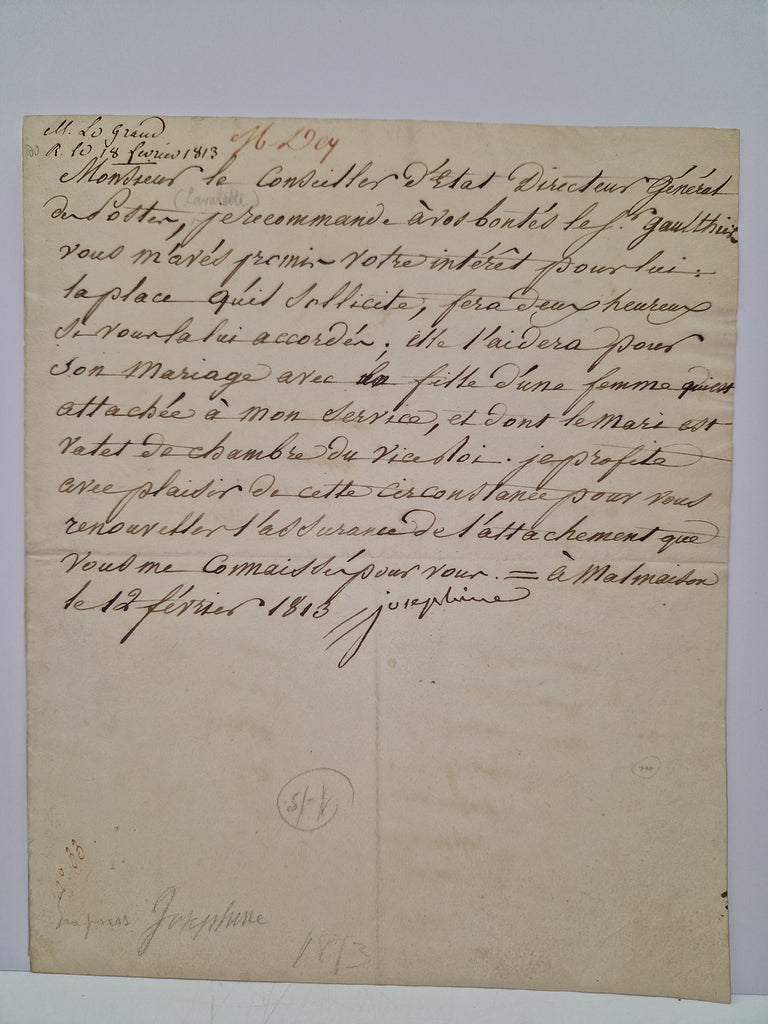 M. Le Grand
R. le 18 fevrier 1813
Monsieur le Conseiller d'Etat Directeur Général
(Lavalette)
des Postes, je recommande à vos bontés le Sr. Gaulthier
vous m'avés promis votre intérêt pour lui :
la place qu'il sollicite, fera deux heureux
si vous la lui accordés ; elle l'aidera pour
son Mariage avec la fille d'une femme qui est
attachée à mon service, et dont le mari est
valet de chambre du vice Roi. je profite
avec plaisir de cette circonstance pour vous
renouveller l'assurance de l'attachement que
vous me connaissés pour vous. = à Malmaison
le 12 février 1813 josephine
Josephine
1813